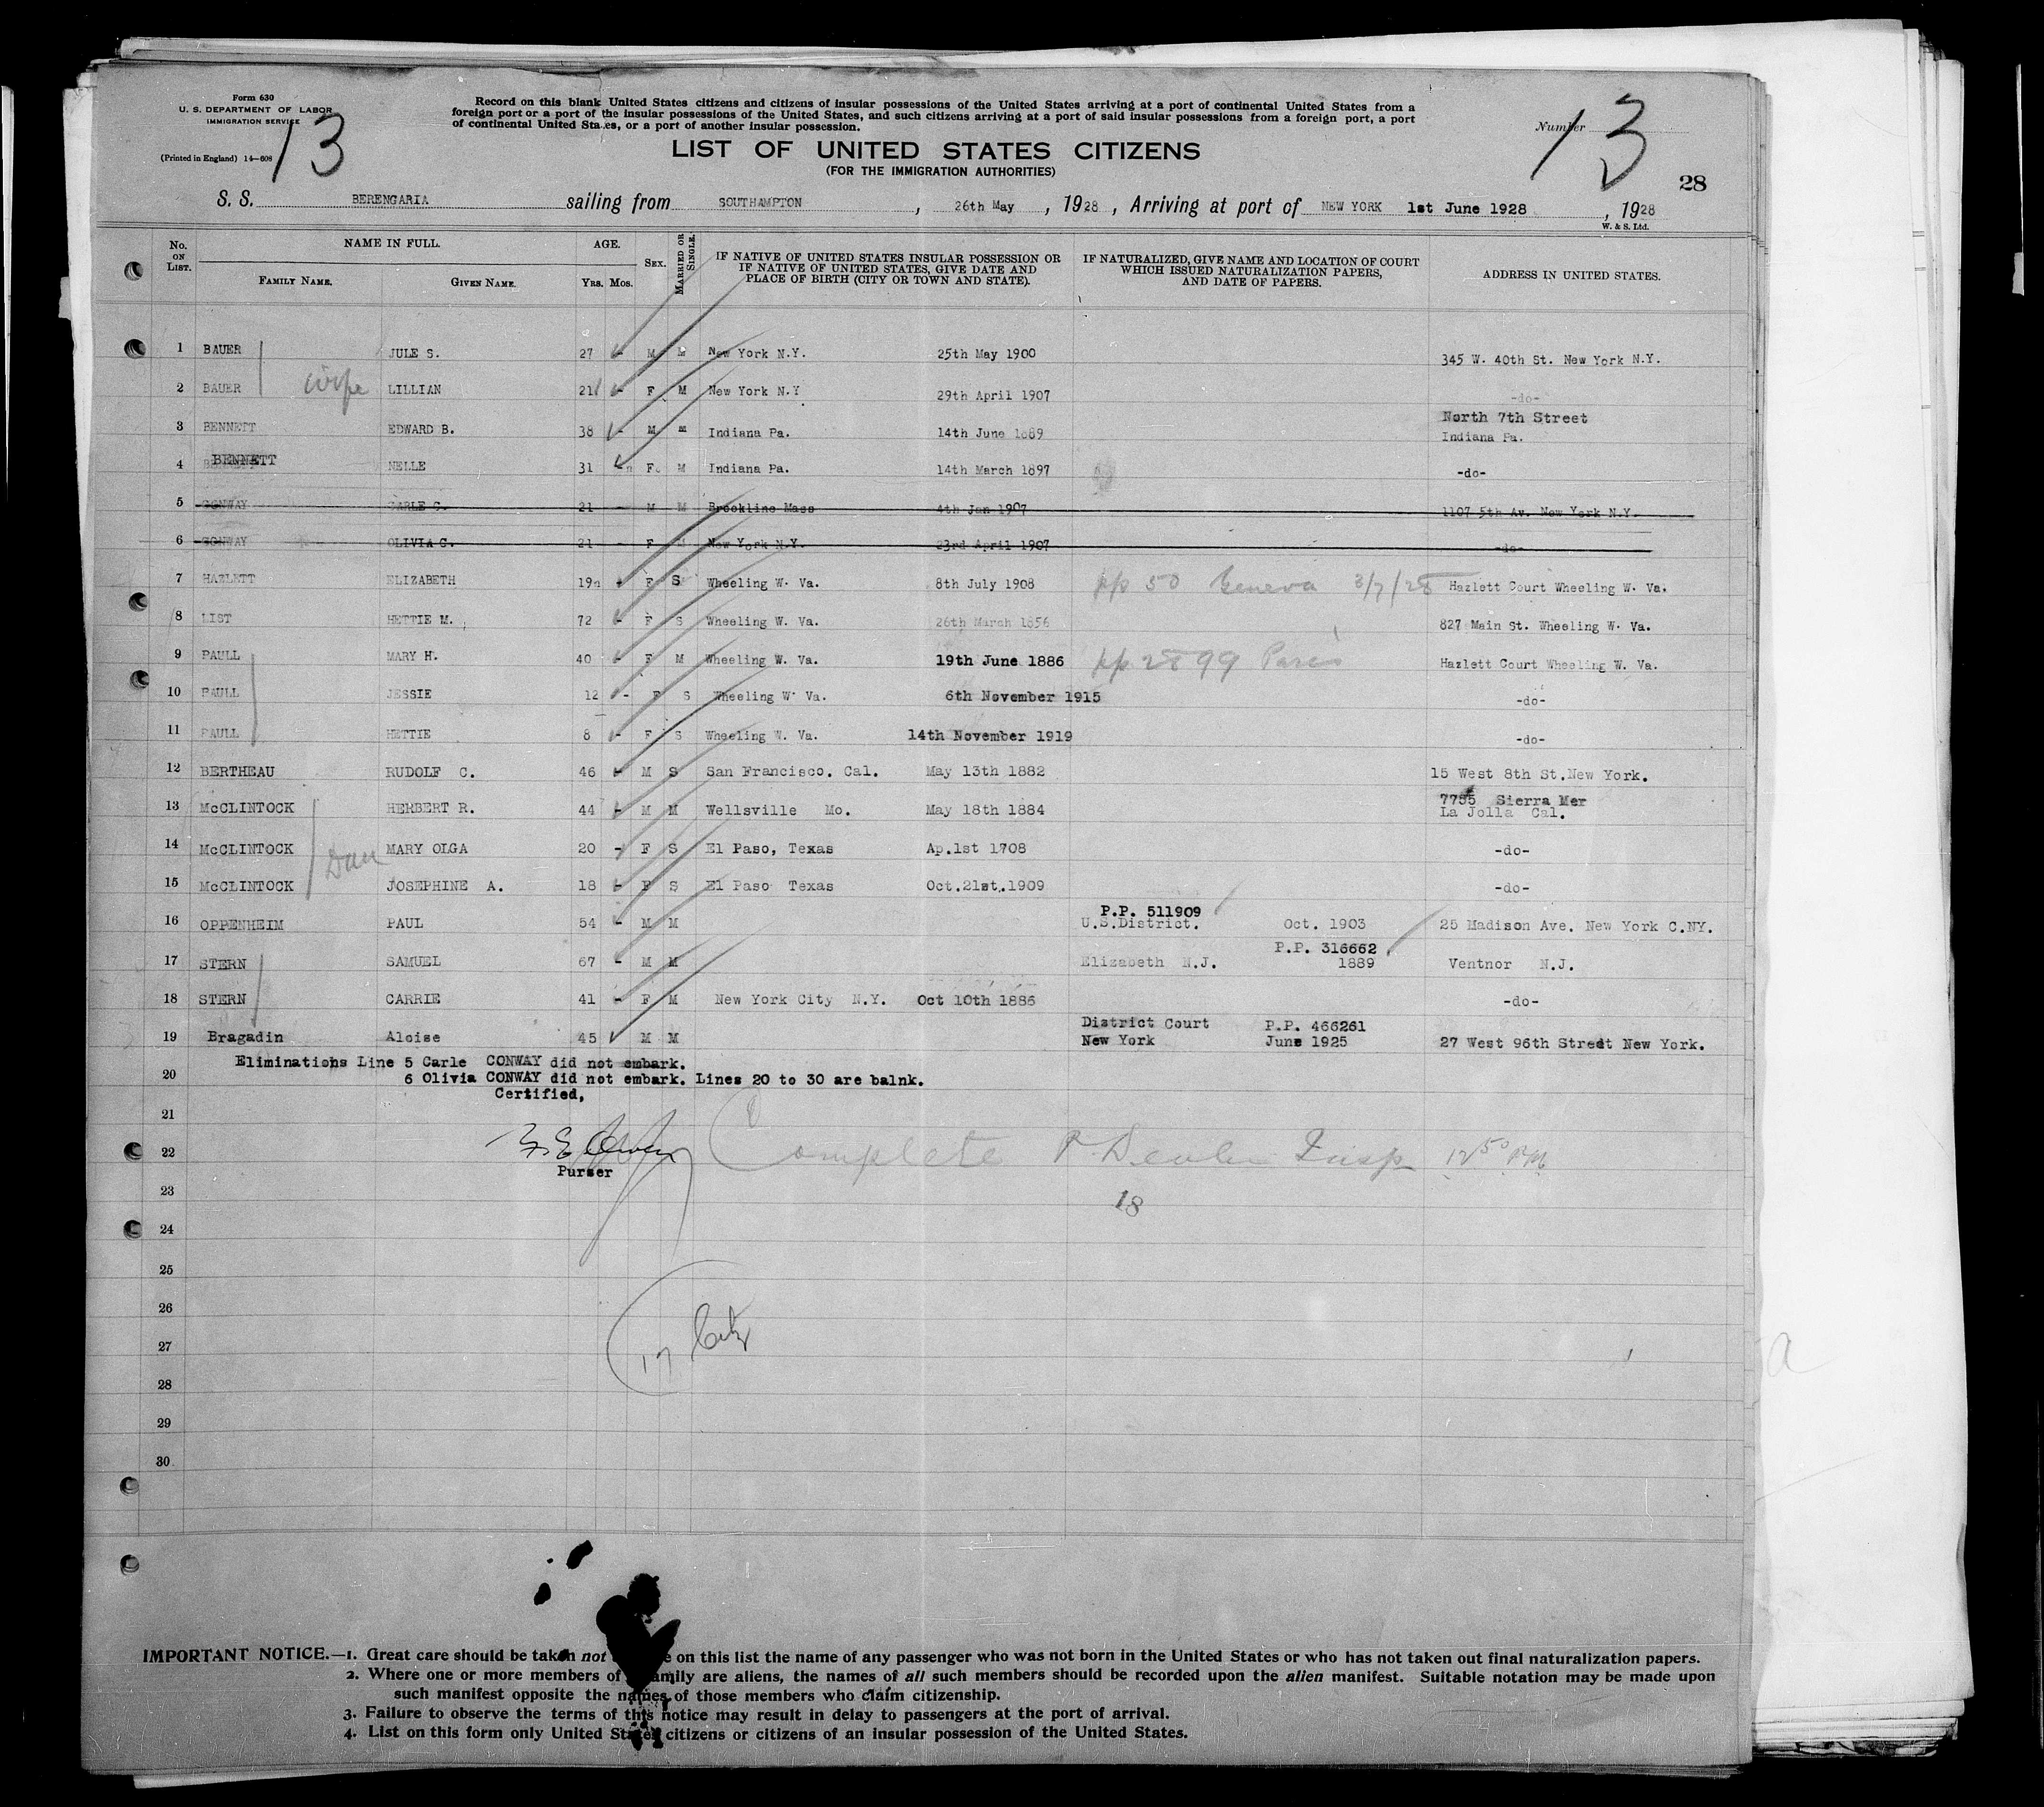 Form 630
U. S. DEPARTMENT OF LABOR
IMMIGRATION SERVICE
(Printed in England) 14—608
13
Record on this blank United States citizens and citizens of insular possessions of the United States arriving at a port of continental United States from a
foreign port or a port of the insular possessions of the United States, and such citizens arriving at a port of said insular possessions from a foreign port, a port
of continental United States, or a port of another insular possession.
Number 13
LIST OF UNITED STATES CITIZENS
(FOR THE IMMIGRATION AUTHORITIES)
28
S. S. BERENGARIA sailing from SOUTHAMPTON , 26th May , 1928 , Arriving at port of NEW YORK 1st June 1928 , 1928
W. & S. Ltd.
No. ON LIST. NAME IN FULL. FAMILY NAME. GIVEN NAME. AGE. YRS. MOS. SEX. MARRIED OR SINGLE. IF NATIVE OF UNITED STATES INSULAR POSSESSION OR IF NATIVE OF UNITED STATES, GIVE DATE AND PLACE OF BIRTH (CITY OR TOWN AND STATE). IF NATURALIZED, GIVE NAME AND LOCATION OF COURT WHICH ISSUED NATURALIZATION PAPERS, AND DATE OF PAPERS. ADDRESS IN UNITED STATES.
1 BAUER JULE S. 27 - M M New York N.Y. 25th May 1900 345 W. 40th St. New York N.Y.
2 BAUER wife LILLIAN 21 - F M New York N.Y 29th April 1907 -do-
3 BENNETT EDWARD B. 38 - M M Indiana Pa. 14th June 1889 North 7th Street
Indiana Pa.
4 BENNETT NELLE 31 - F. M Indiana Pa. 14th March 1897 -do-
5 CONWAY CARLE C. 21 - M M Brookline Mass 4th Jan 1907 1107 5th Av. New York N.Y.
6 CONWAY OLIVIA C. 21 - F M New York N.Y. 23rd April 1907 -do-
7 HAZLETT ELIZABETH 19 - F S Wheeling W. Va. 8th July 1908 pp 50 Geneva 3/7/28 Hazlett Court Wheeling W. Va.
8 LIST HETTIE M. 72 - F S Wheeling W. Va. 26th March 1856 827 Main St. Wheeling W. Va.
9 PAULL MARY H. 40 - F M Wheeling W. Va. 19th June 1886 pp 2899 Paris Hazlett Court Wheeling W. Va.
10 PAULL JESSIE 12 - F S Wheeling W. Va. 6th November 1915 -do-
11 PAULL HETTIE 8 - F S Wheeling W. Va. 14th November 1919 -do-
12 BERTHEAU RUDOLF C. 46 - M S San Francisco. Cal. May 13th 1882 15 West 8th St.New York.
13 McCLINTOCK HERBERT R. 44 - M M Wellsville Mo. May 18th 1884 7755 Sierra Mer
La Jolla Cal.
14 McCLINTOCK Dau MARY OLGA 20 - F S El Paso, Texas Ap.1st 1908 -do-
15 McCLINTOCK JOSEPHINE A. 18 - F S El Paso Texas Oct.21st.1909 -do-
P.P. 511909
16 OPPENHEIM PAUL 54 - M M U.S.District. Oct. 1903 25 Madison Ave. New York C.NY.
P.P. 316662
17 STERN SAMUEL 67 - M M Elizabeth N.J. 1889 Ventnor N.J.
18 STERN CARRIE 41 - F M New York City N.Y. Oct 10th 1886 -do-
District Court P.P. 466261
19 Bragadin Aloise 45 M M New York June 1925 27 West 96th Street New York.
Eliminations Line 5 Carle CONWAY did not embark.
20 6 Olivia CONWAY did not embark. Lines 20 to 30 are balnk.
Certified,
21
22 Complete Insp 12 50 PM
Purser
23 18
24
25
26
27 17 Citz
28
29
30
IMPORTANT NOTICE.—1. Great care should be taken not on this list the name of any passenger who was not born in the United States or who has not taken out final naturalization papers.
2. Where one or more members of family are aliens, the names of all such members should be recorded upon the alien manifest. Suitable notation may be made upon
such manifest opposite the names of those members who claim citizenship.
3. Failure to observe the terms of this notice may result in delay to passengers at the port of arrival.
4. List on this form only United States citizens or citizens of an insular possession of the United States.